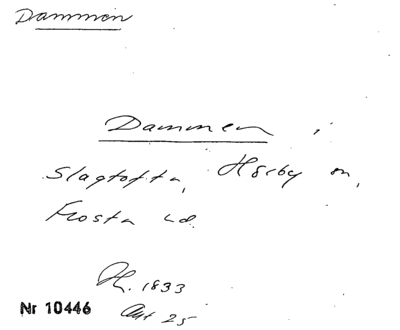 Dammen
Dammen i
Slagtofta, Hörby sn,
Frosta hd.
Lh. 1833
Akt 25
Nr 10446